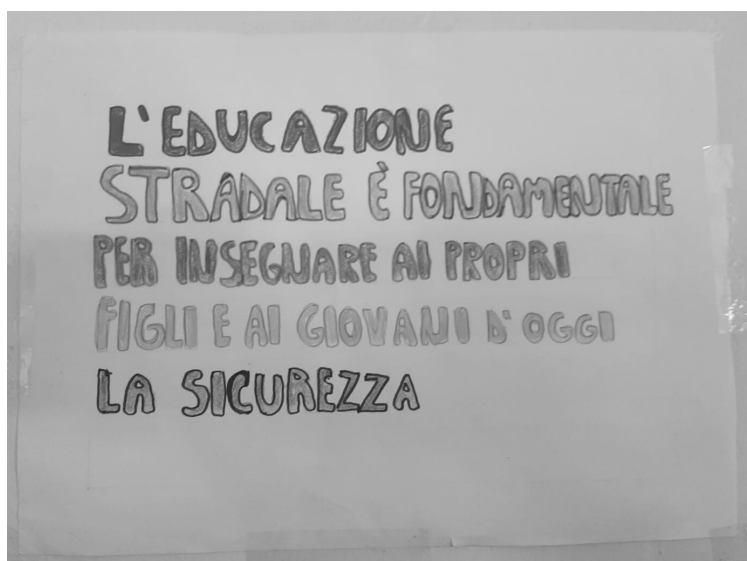 L'EDUCAZIONE
STRADALE È FONDAMENTALE
PER INSEGNARE AI PROPRI
FIGLI E AI GIOVANI D'OGGI
LA SICUREZZA